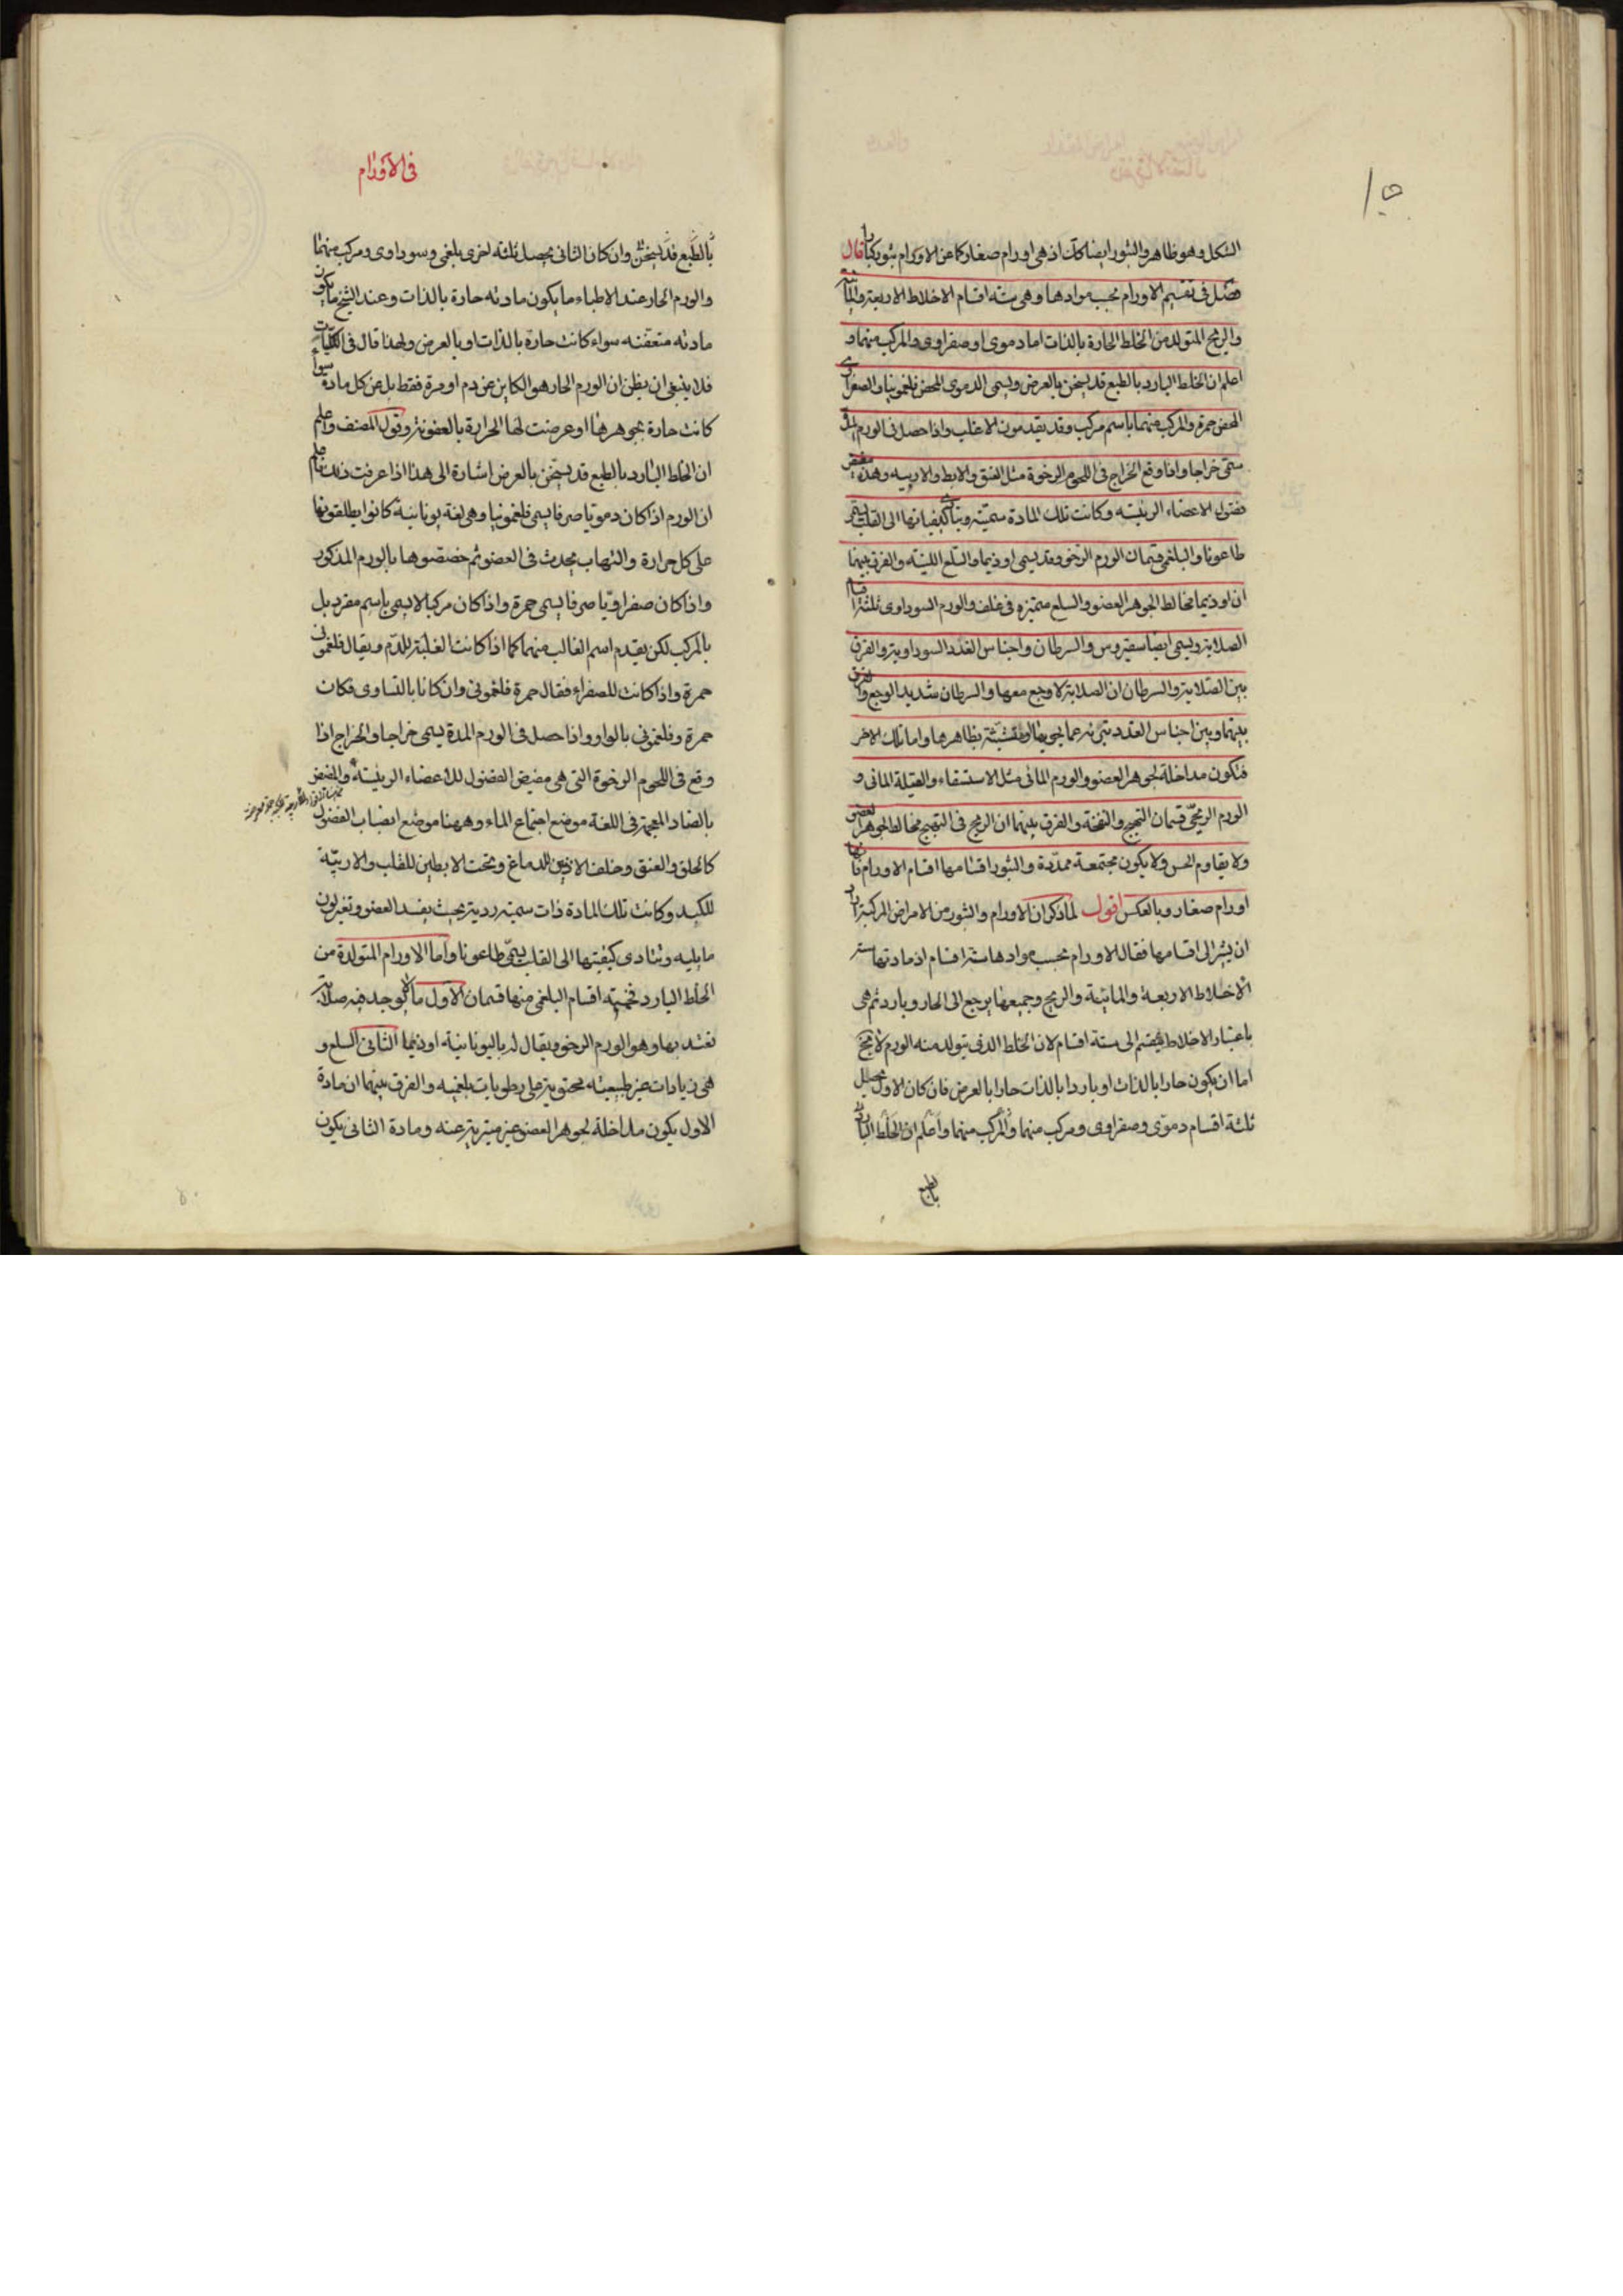 الشكل وهو ظاهر والبثور ايضا كك اذ هى اورام صغار كما عن الاورام بثور كبار قال
فصل فى تقسيم الاورام بحسب موادها وهى ستة اقسام الاخلاط الاربعة والمائية
والريح المتولد من الخلط الحارة بالذات اما دموى او صفراوى والمركب منهما و
اعلم ان الخلط البارد بالطبع قد يسخن بالعرض ويسمى الدموى المحض فلغمونيا والصفراوى
المحض حمرة والمركب منهما باسم مركب وقد يقدمون الاغلب واذا حصل فى الورم المدة
سمى خراجا واذا وقع الخراج فى اللحوم الرخوة مثل العنق والابط والاربيه وهذه
فضول الاعضاء الرئيسه وكانت تلك المادة سمية ويتأدى كيفياتها الى القلب يسمى
طاعونا والبلغمى قسمان الورم الرخو وقد يسمى اوذيما والسلع اللينه والفرق بينهما
ان اوذيما مخالط لجوهر العضو والسلع متميزه فى غلف والورم السوداوى ثلثة اقسام
الصلابة ويسمى ايضا سقيروس والسرطان واجناس الغدد السوداوية والفرق
بين الصلابة والسرطان ان الصلابة لا وجع معها والسرطان شديد الوجع والفرق
بينهما وبين اجناس الغدد تبرئه عما يحويها متشبثة بظاهرها واما تلك الاخر
فتكون مداخلة لجوهر العضو والورم المائى مثل الاستسقاء والقيلة المائى و
الورم الريحى قسمان التهيج والنفخة والفرق بينهما ان الريح فى التهيج مخالط لجوهر العضو
ولا يقاوم الحس ولا يكون مجتمعة ممددة والبثور اقسامها اقسام الاورام فانها
اورام صغار وبالعكس اقول لما ذكر ان الاورام والبثور من الامراض المركبة اراد
ان يشير الى اقسامها فقال الاورام بحسب موادها ستة اقسام اذ مادتها ستر
الاخلاط الاربعة والمائية والريح وجميعها يرجع الى الحار وبارد ثم هى
باعتبار الاخلاط ينقسم الى ستة اقسام لان الخلط الذى يتولد منه الورم لا يخ
اما ان يكون حارا بالذات او باردا بالذات حارا بالعرض فان كان الاول يحصل
ثلثة اقسام دموى وصفراوى ومركب منهما والمركب منهما واعلم ان الخلط البارد
بالطبع
فى الاورام
بالطبع قد يسخن وان كان الثانى يحصل ثلثة اخرى بلغمى وسوداوى ومركب منهما
والورم الحار عند الاطباء ما يكون مادته حارة بالذات وعند الشيخ ما يكون
مادته متعفنه سواء كانت حارة بالذات او بالعرض ولهذا قال فى الكليات
فلا ينبغى ان يظن ان الورم الحار هو الكاين عن دم او مرة فقط بل عن كل مادة سواء
كانت حارة بجوهرها او عرضت لها الحرارة بالعفونة وقول المصنف واعلم
ان الخلط البارد بالطبع قد يسخن بالعرض اشارة الى هذا اذا عرفت ذلك فاعلم
ان الورم اذا كان دمويا صرفا يسمى فلغمونيا وهى لغة يونانية كانوا يطلقونها
على كل حرارة والتهاب يحدث فى العضو ثم خصصوها بالورم المذكور
واذا كان صفراويا صرفا يسمى حمرة واذا كان مركبا لا يسمى باسم مفرد بل
بالمركب لكن يقدم اسم الغالب منهما كما اذا كانت الغلبة للدم ويقال فلغمونى
حمرة واذا كانت للصفراء فقال حمرة فلغمونى وان كانا بالتساوى فكان
حمرة وفلغمونى بالواو واذا حصل فى الورم المدة يسمى خراجا والخراج اذا
وقع فى اللحوم الرخوة التى هى مفيض الفضول للاعضاء الرئيسة والمفيض
بالضاد المعجمة فى اللغة موضع اجتماع الماء وههنا موضع انصباب الفضول
كالحلق والعنق وخلف الاذنين للدماغ وتحت الابطين للقلب والاربية
للكبد وكانت تلك المادة ذات سمية ردية بحيث يفسد العضو وتغير لون
ما يليه وتتادى كيفيتها الى القلب يسمى طاعونا واما الاورام المتولدة من
الخلط البارد فخمسة اقسام البلغمى منها قسمان الاول ما لا يوجد فيه صلابة
تعتد بها وهو الورم الرخو ويقال له باليونانية اوذيما الثانى السلع و
هى زيادات غير طبيعيته محتوية على رطوبات بلغميه والفرق بينهما ان مادة
الاول يكون مداخلة لجوهر العضو غير متبرية عنه ومادة الثانى يكون